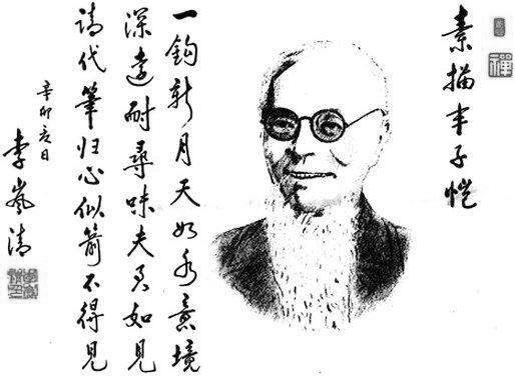 素描丰子恺
禪
一鈎新月天如水意境
深遠耐尋味夫君如見
请代筆归心似箭不得見
辛卯冬日
李嵐清